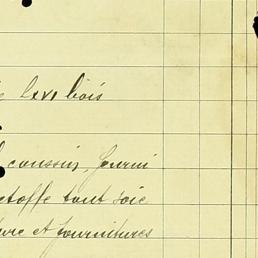 bois
coussin, fourni
etoffe tout soie
et fournitures